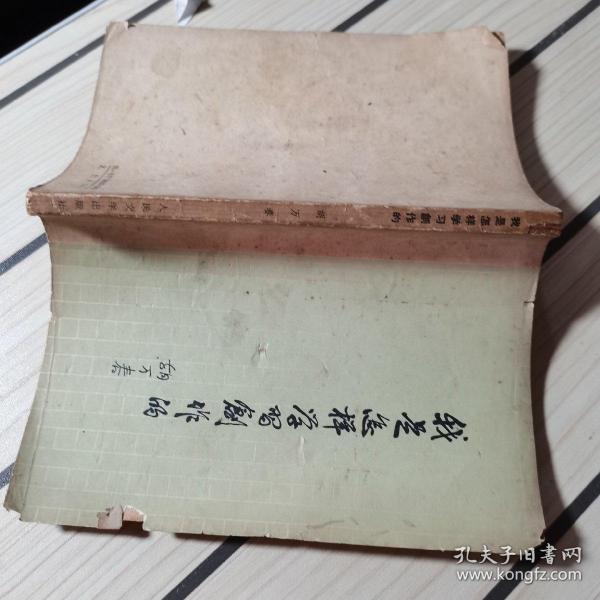 我是怎样学习創作的
胡万春
人民文学出版社
我是怎样学習創作的
胡万春
孔夫子旧書网
www.kongfz.com